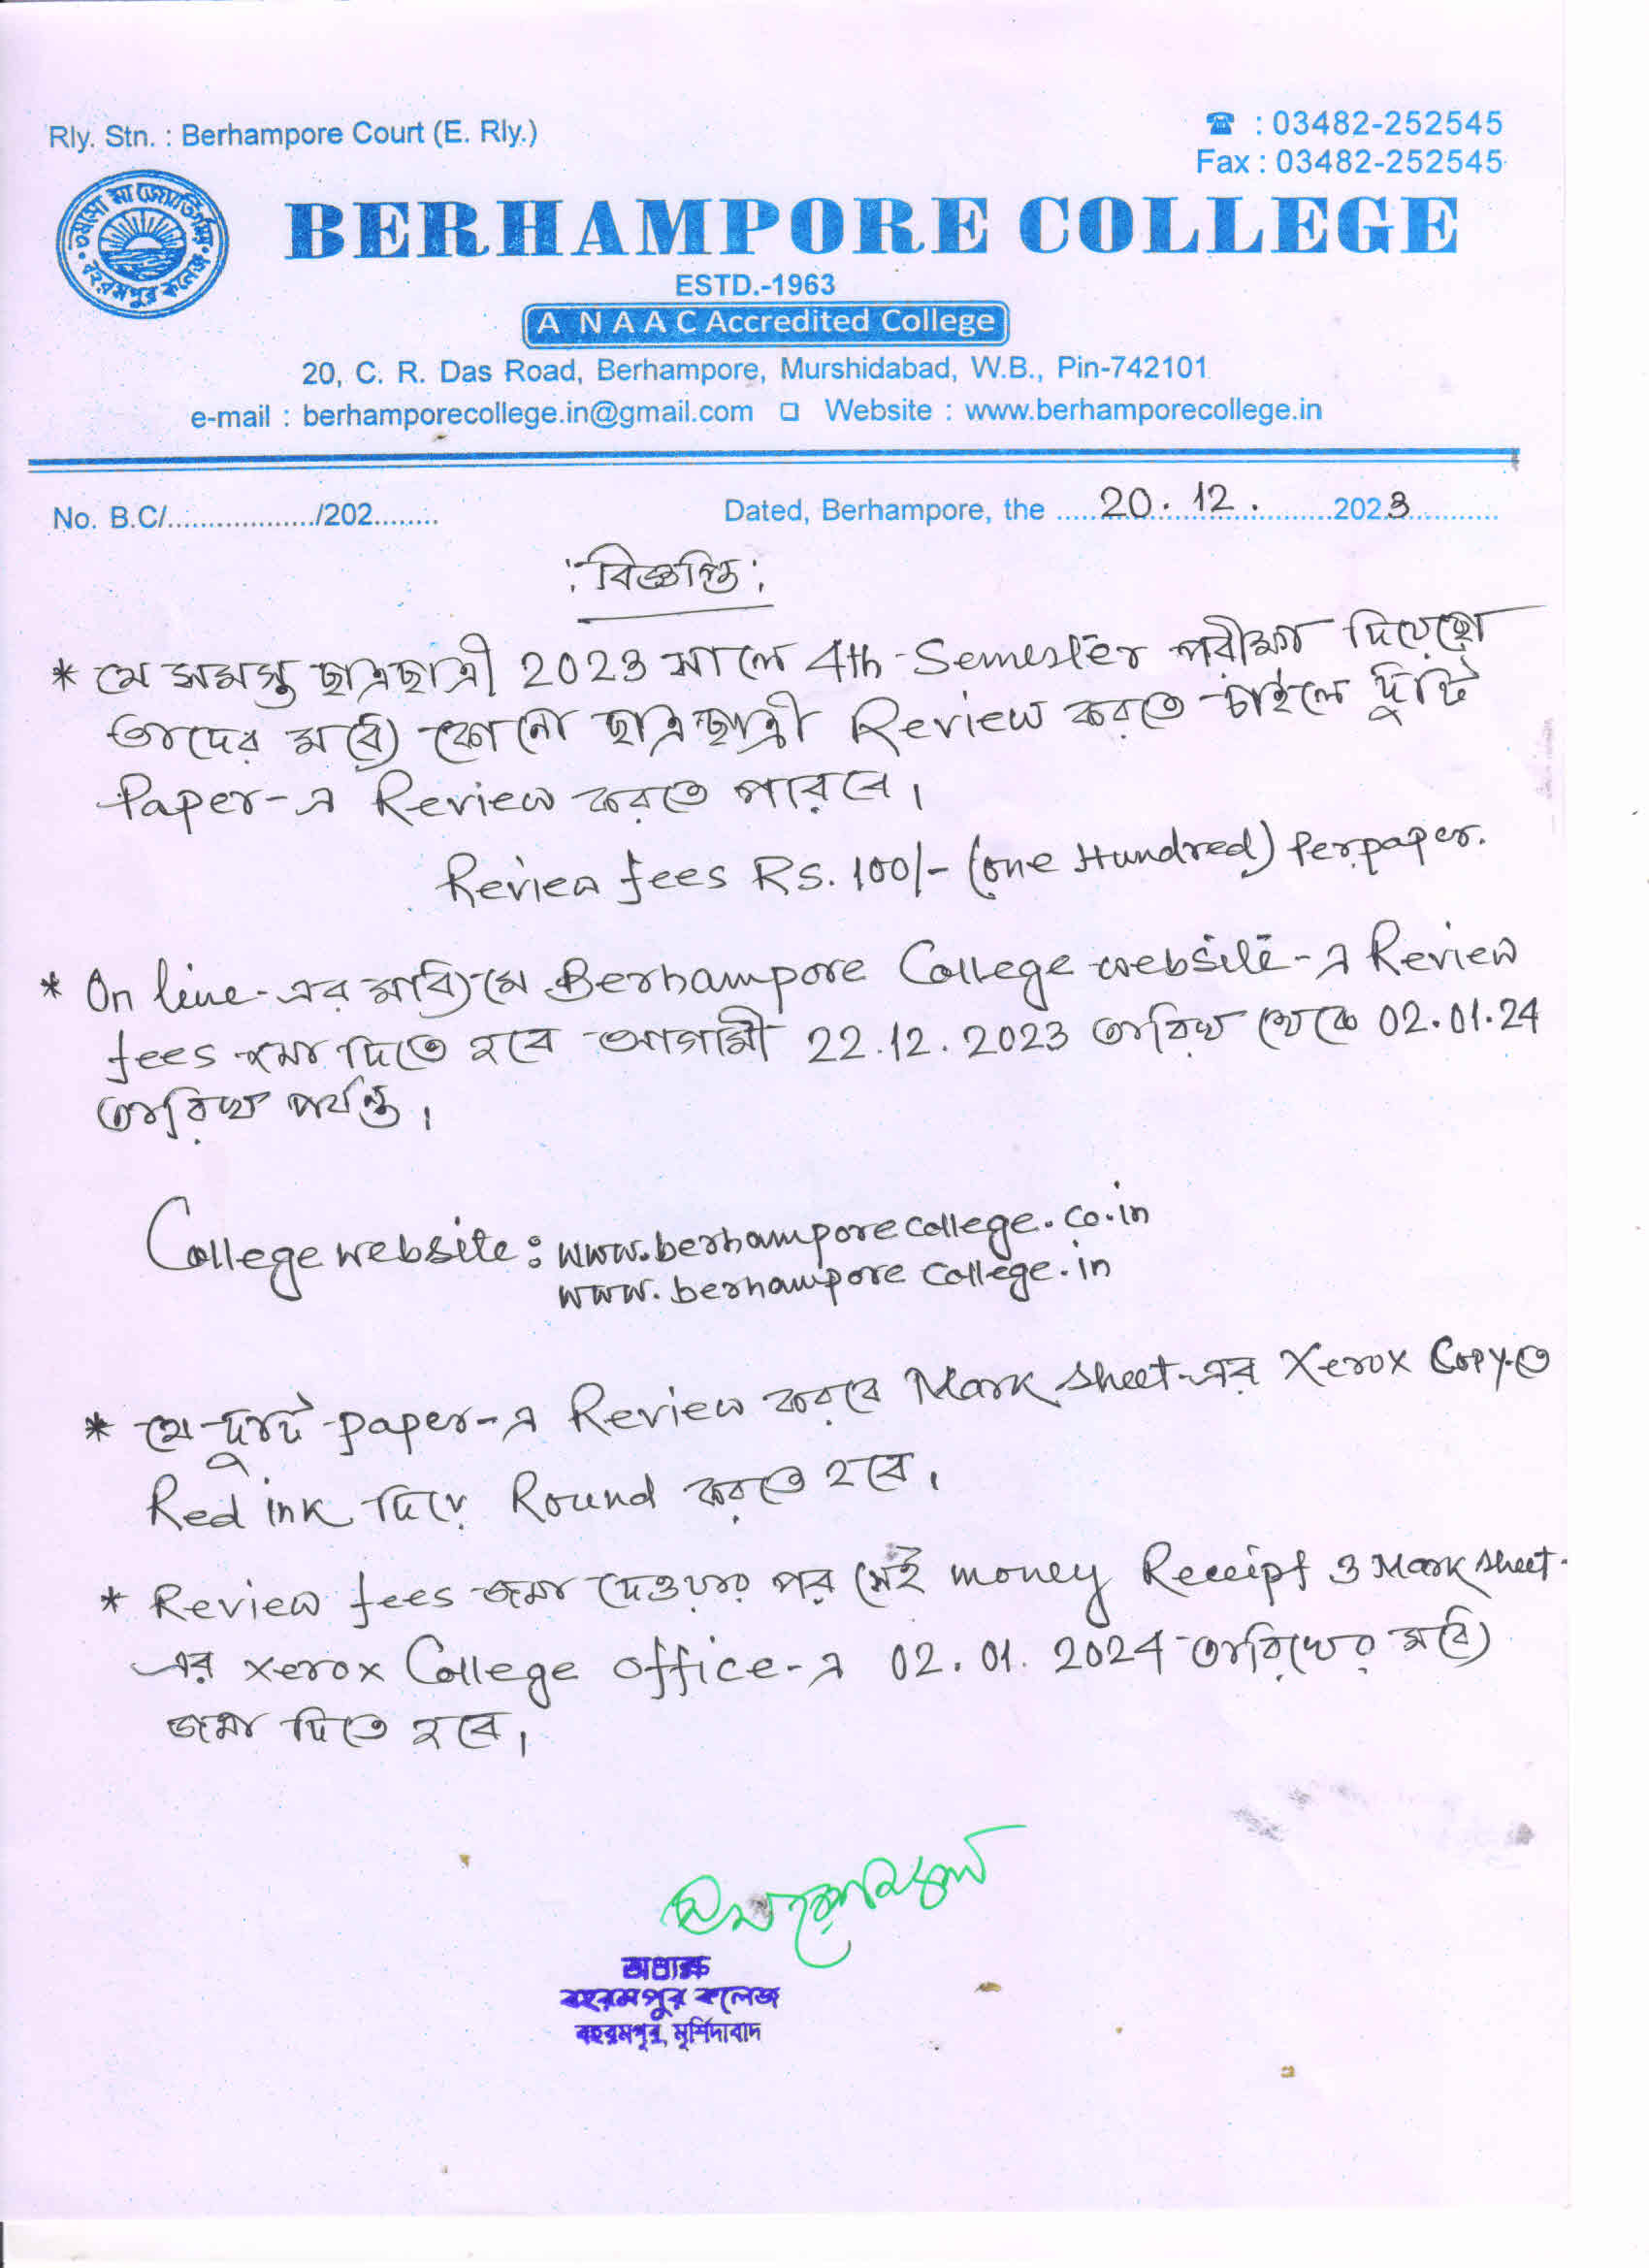 Rly. Stn. : Berhampore Court (E. Rly.)
☎ : 03482-252545
Fax : 03482-252545
তমসো মা জ্যোতির্গময়
বহরমপুর কলেজ
BERHAMPORE COLLEGE
ESTD.-1963
A NAAC Accredited College
20, C. R. Das Road, Berhampore, Murshidabad, W.B., Pin-742101
e-mail : berhamporecollege.in@gmail.com □ Website : www.berhamporecollege.in
No. B.C/................../202........ Dated, Berhampore, the .....20.12...........2023...........
:বিজ্ঞপ্তি:
* যে সমস্ত ছাত্রছাত্রী 2023 সালে 4th Semester পরীক্ষা দিয়েছো
তাদের মধ্যে কোনো ছাত্রছাত্রী Review করতে চাইলে দুটি
Paper-এ Review করতে পারবে।
Review fees Rs. 100/- (one Hundred) Per paper.
* On line-এর মাধ্যমে Berhampore College website-এ Review
fees জমা দিতে হবে আগামী 22.12.2023 তারিখ থেকে 02.01.24
তারিখ পর্যন্ত।
College website: www.berhamporecollege.co.in
www.berhamporecollege.in
* যে দুটি paper-এ Review করবে Mark sheet-এর Xerox Copy-তে
Red ink দিয়ে Round করতে হবে।
* Review fees জমা দেওয়ার পর সেই money Receipt ও Mark sheet-
এর xerox College office-এ 02.01.2024 তারিখের মধ্যে
জমা দিতে হবে।
অধ্যক্ষ
বহরমপুর কলেজ
বহরমপুর, মুর্শিদাবাদ